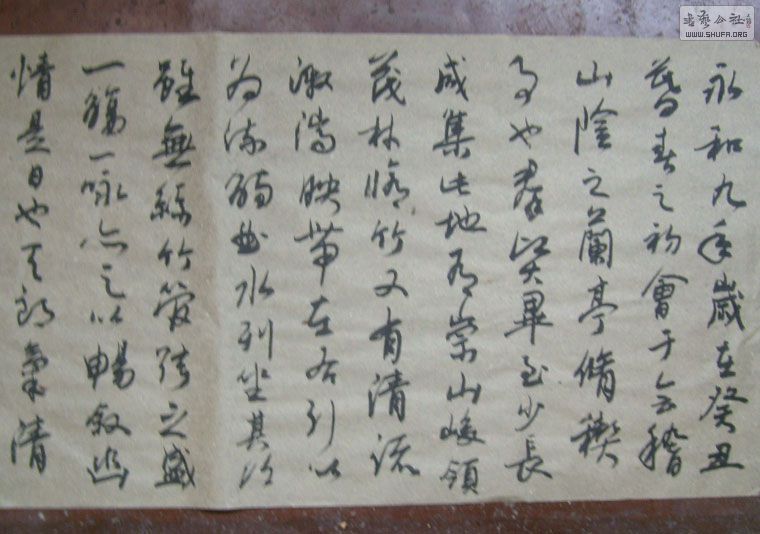 永和九年歲在癸丑
暮春之初會于會稽
山陰之蘭亭脩禊
事也羣賢畢至少長
咸集此地有崇山峻領
茂林脩竹又有清流
激湍映帶左右引以
為流觴曲水列坐其次
雖無絲竹管弦之盛
一觴一詠亦足以暢敘幽
情是日也天朗氣清
書藝公社
WWW.SHUFA.ORG